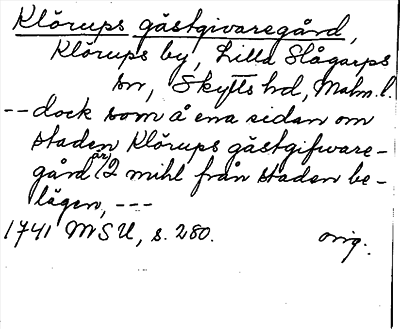 Klörups gästgivaregård,
Klörups by, Lilla Slågarps
sn, Skytts hd, Malm. l.
-- dock som å ena sidan om
staden Klörups gästgifware-
gård (är) 2 mihl från staden be-
lägen, ---
1741 MSU, s. 280. orig.